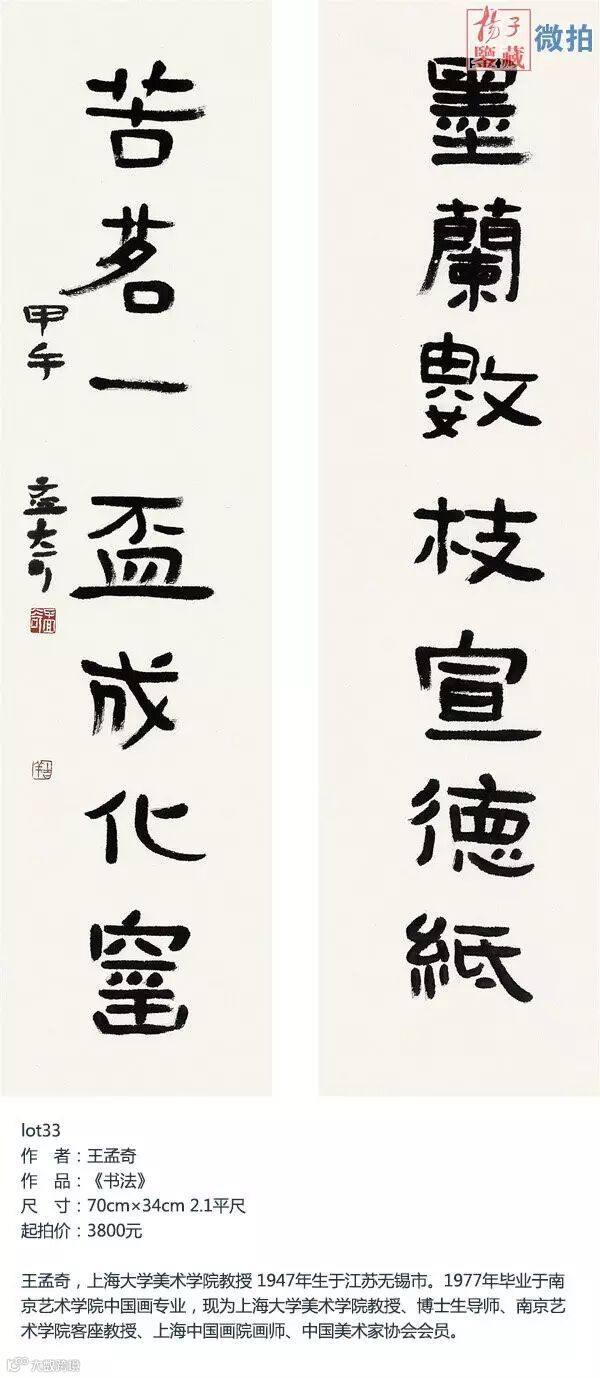 揚子
鑒藏
微拍
墨蘭數枝宣德紙
苦茗一盃成化窰
甲午
孟奇
lot33
作 者：王孟奇
作 品：《书法》
尺 寸：70cm×34cm 2.1平尺
起拍价：3800元
王孟奇，上海大学美术学院教授 1947年生于江苏无锡市。1977年毕业于南
京艺术学院中国画专业，现为上海大学美术学院教授、博士生导师、南京艺
术学院客座教授、上海中国画院画师、中国美术家协会会员。
大数跨境